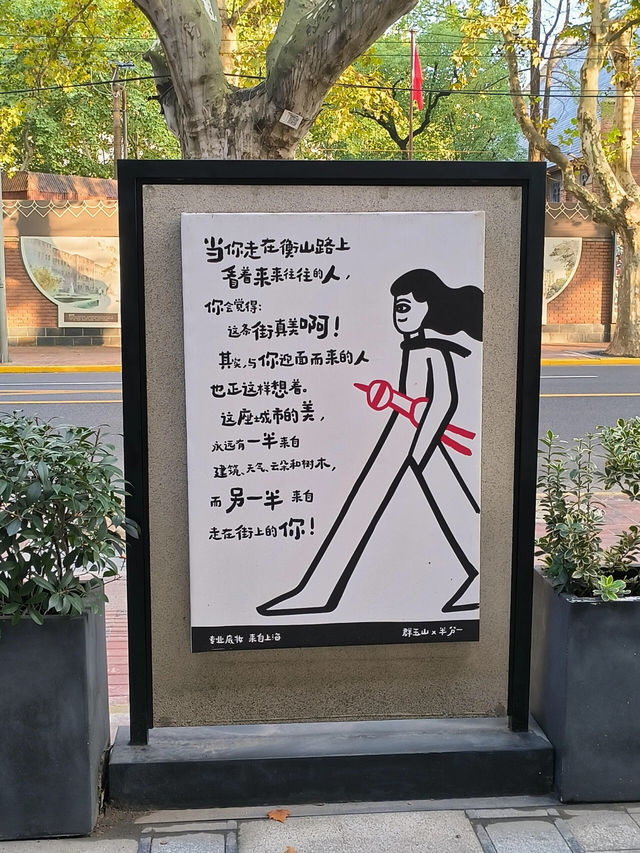 当你走在衡山路上
看着来来往往的人，
你会觉得：
这条街真美啊！
其实，与你迎面而来的人
也正这样想着。
这座城市的美，
永远有一半来自
建筑、天气、云朵和树木，
而另一半 来自
走在街上的你！
专业底妆 来自上海
群玉山 x 半分一